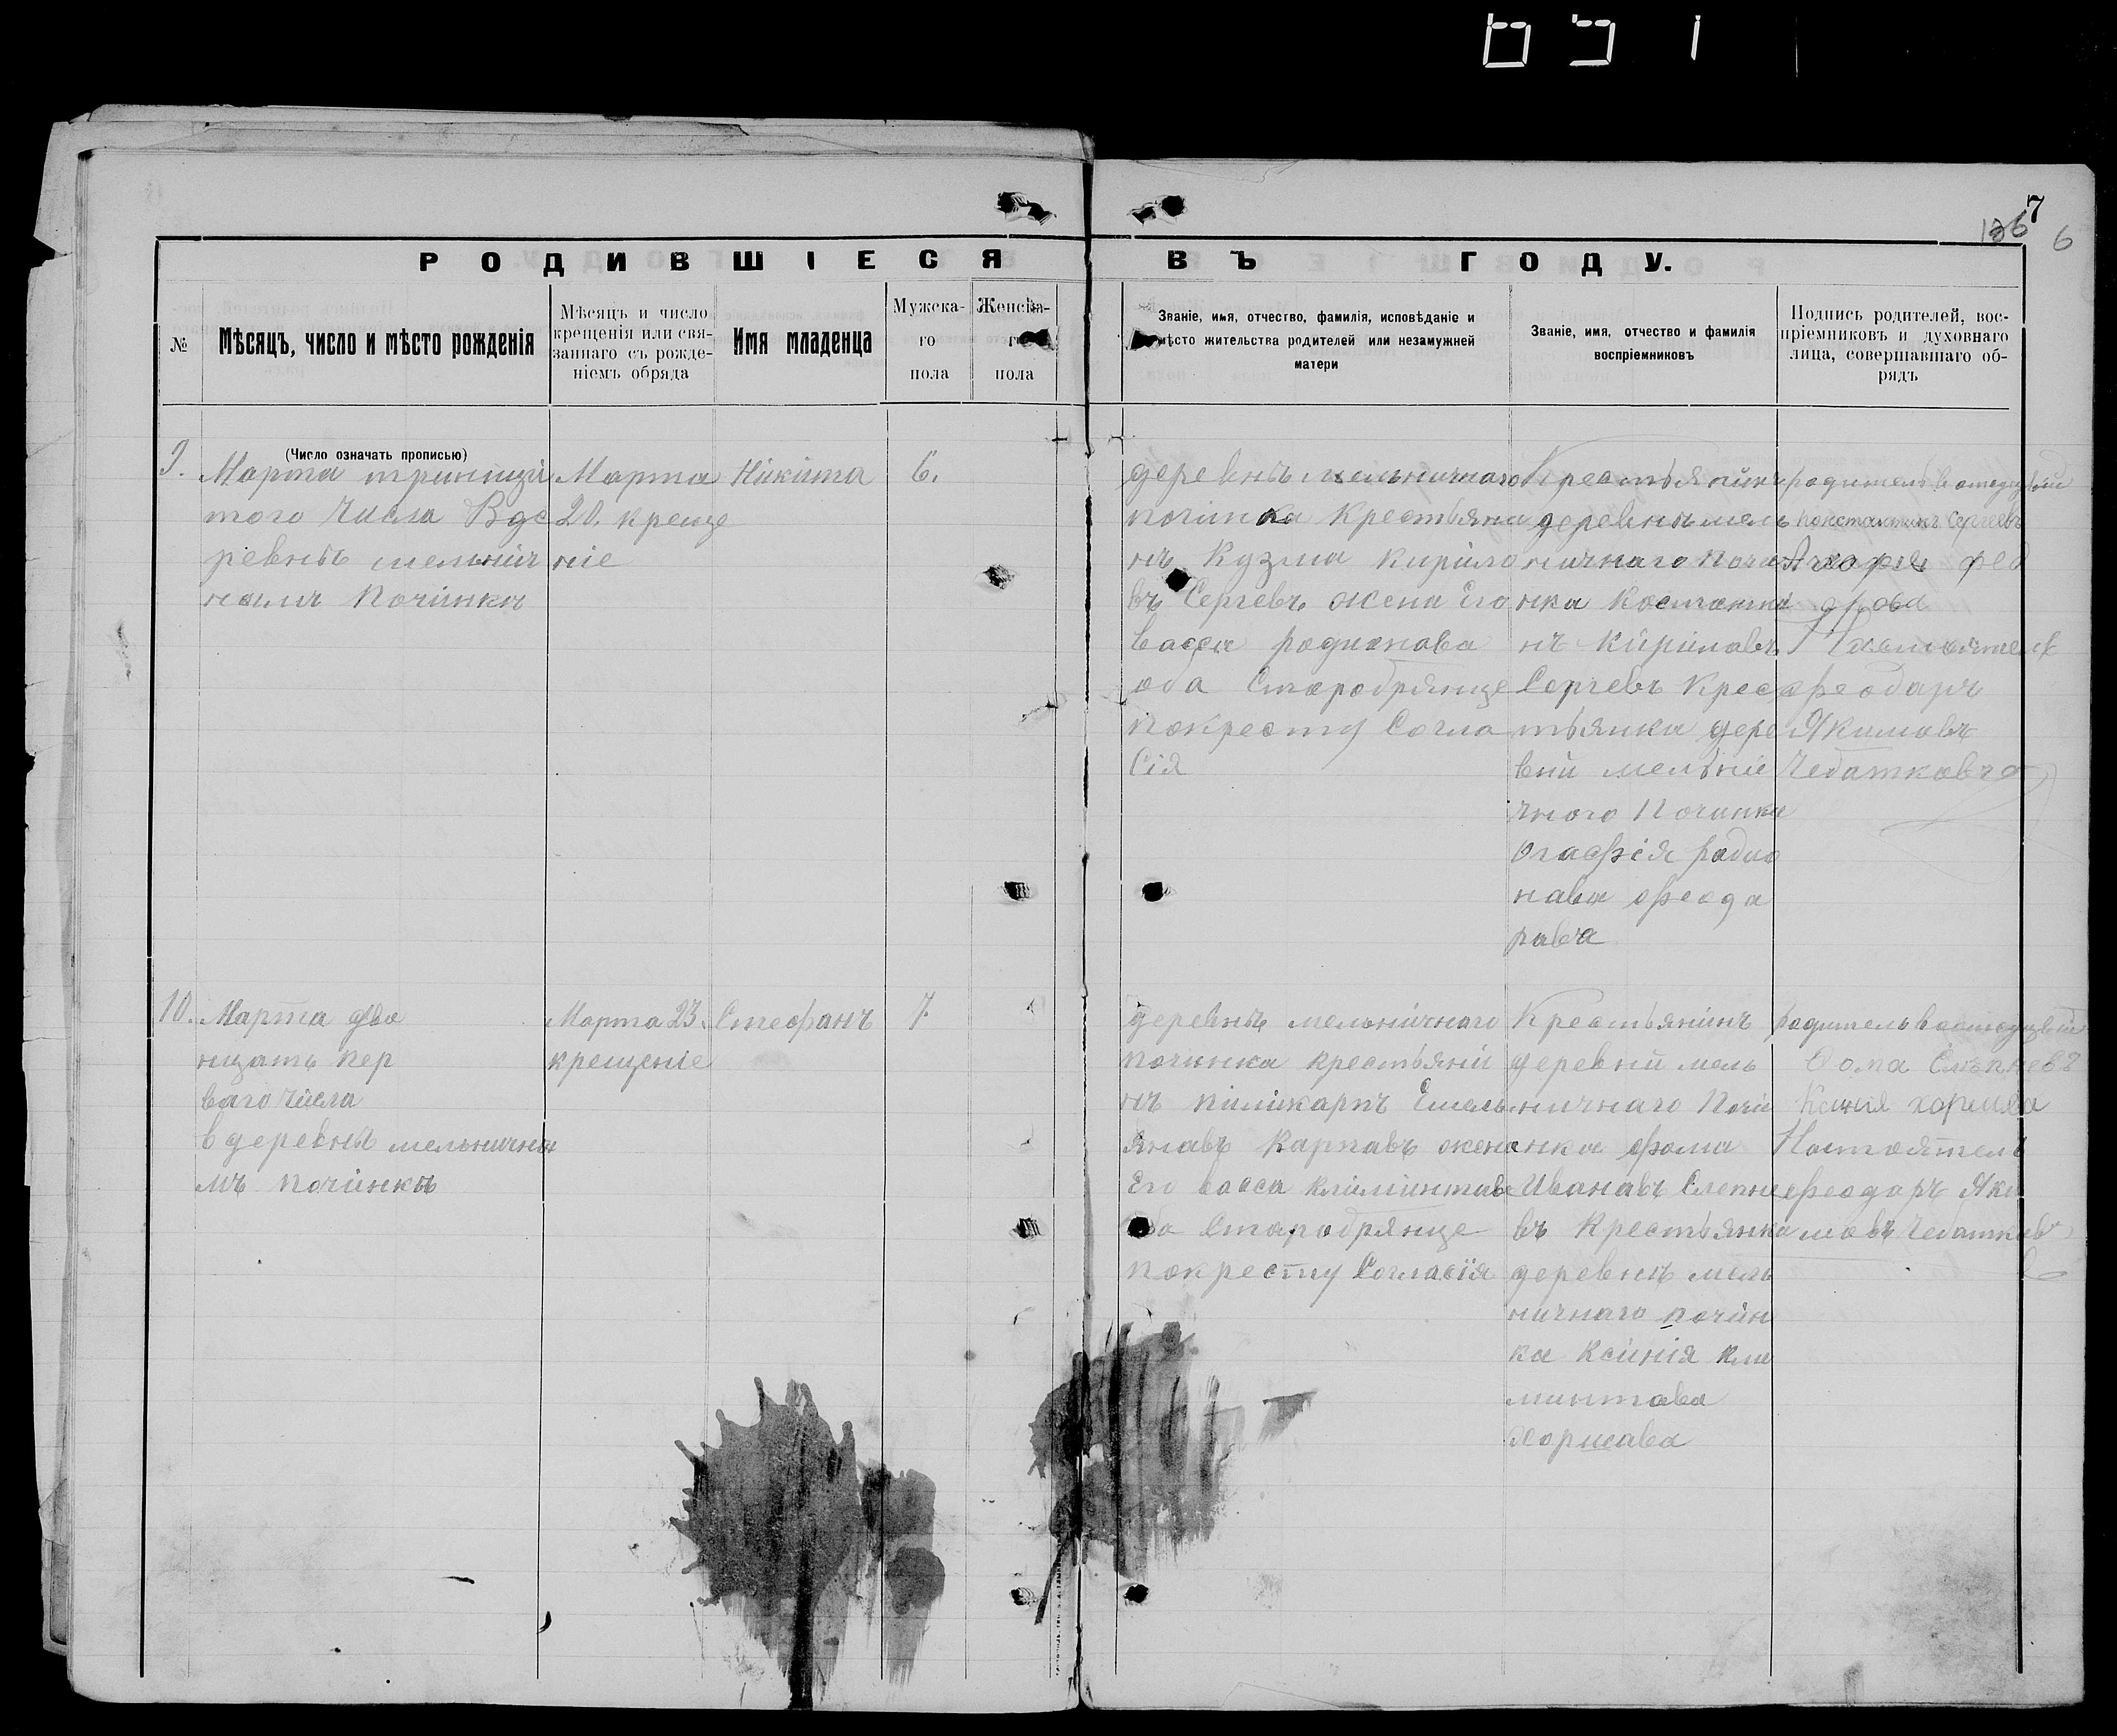 7
136 6
РОДИВШІЕСЯ ВЪ ГОДУ.
№
Мѣсяцъ, число и мѣсто рожденія
Мѣсяцъ и число
крещенія или свя-
заннаго съ рожде-
ніемъ обряда
Имя младенца
Мужска-
го
пола
Женска-
го
пола
Званіе, имя, отчество, фамилія, исповѣданіе и
мѣсто жительства родителей или незамужней
матери
Званіе, имя, отчество и фамилія
воспріемниковъ
Подпись родителей, вос-
пріемниковъ и духовнаго
лица, совершавшаго об-
рядъ
(Число означать прописью)
9.
Марта
того Числа Вде
ревнѣ мельнич
номъ Починки
Марта
20. креще
ніе
Нікіта
6.
деревнѣ мельничнаго
починка Крестьяни
нъ Кузма Кирило
въ Сергевъ жена Его
васса родионава
оба Старобрянце
покресту Согла
Сія
Крестьянинъ
деревнѣ мель
ничнаго Почи
нка Костанти
нъ Кириловъ
Сергевъ Крес
тьянка дере
вни мельни
чного Починка
Огафія радио
нава феода
рава
родитель
Константинъ Сергевъ
фео
дарова
феодаръ
Якимовъ
Чебатковъ
10.
Марта два
нцать пер
ваго Числа
в деревнѣ мельнично
мъ починкѣ
Марта 23.
крещеніе
Стефанъ
7.
деревнѣ мельничнаго
починка крестьяни
нъ пиликарпъ Емель
янавъ Карпавъ жена
Его васса климинтава
оба Старобрянце
покресту Согласія
Крестьянинъ
деревни мель
ничнаго Почи
нка фома
Иванавъ Слепне
въ Крестьянка
деревнѣ мель
ничнаго почин
ка Ксинія кли
минтава
Хорисава
родитель
Фома Слепневъ
Ксинія
Настоятель
феодаръ Яки
мовъ Чебатков